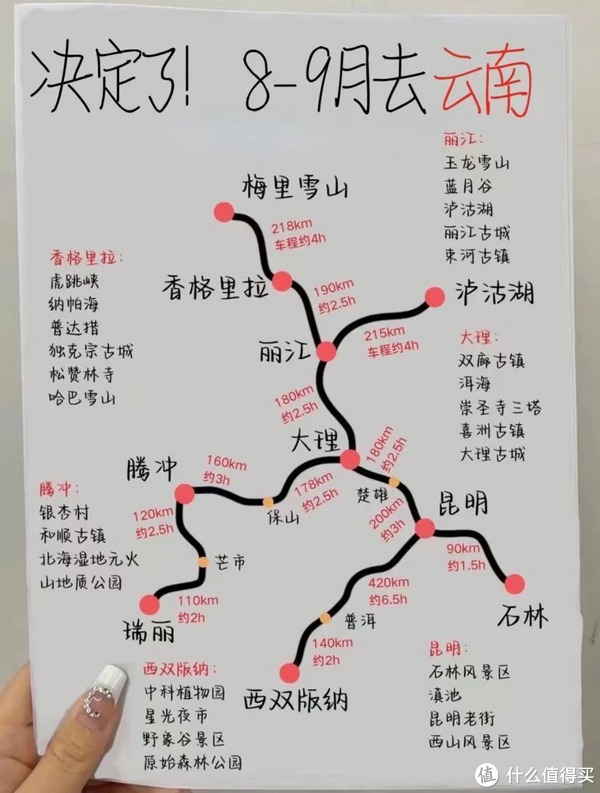 决定了! 8-9月去云南
丽江:
玉龙雪山
蓝月谷
泸沽湖
丽江古城
束河古镇
梅里雪山
218km
车程约4h
香格里拉:
虎跳峡
纳帕海
普达措
独克宗古城
松赞林寺
哈巴雪山
香格里拉
190km
约2.5h
泸沽湖
215km
车程约4h
丽江
大理:
双廊古镇
洱海
崇圣寺三塔
喜洲古镇
大理古城
180km
约2.5h
大理
180km
约2.5h
楚雄
200km
约3h
昆明
腾冲
160km
约3h
178km
约2.5h
保山
腾冲:
银杏村
和顺古镇
北海湿地元火
山地质公园
120km
约2.5h
芒市
110km
约2h
瑞丽
90km
约1.5h
石林
420km
约6.5h
普洱
140km
约2h
西双版纳
西双版纳:
中科植物园
星光夜市
野象谷景区
原始森林公园
昆明:
石林风景区
滇池
昆明老街
西山风景区
值 什么值得买